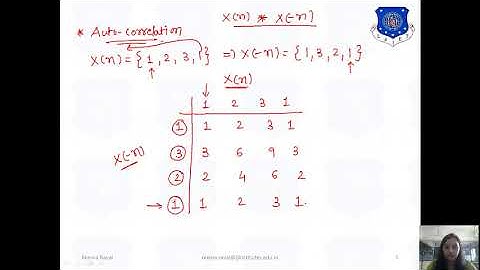 x(n) * x(-n)
* Auto-correlation
x(n) = { 1, 2, 3, 1 } ⇒ x(-n) = { 1, 3, 2, 1 }
↑ ↑
x(n)
↓
1 2 3 1
1 1 2 3 1
x(-n) 3 3 6 9 3
2 2 4 6 2
→ 1 1 2 3 1